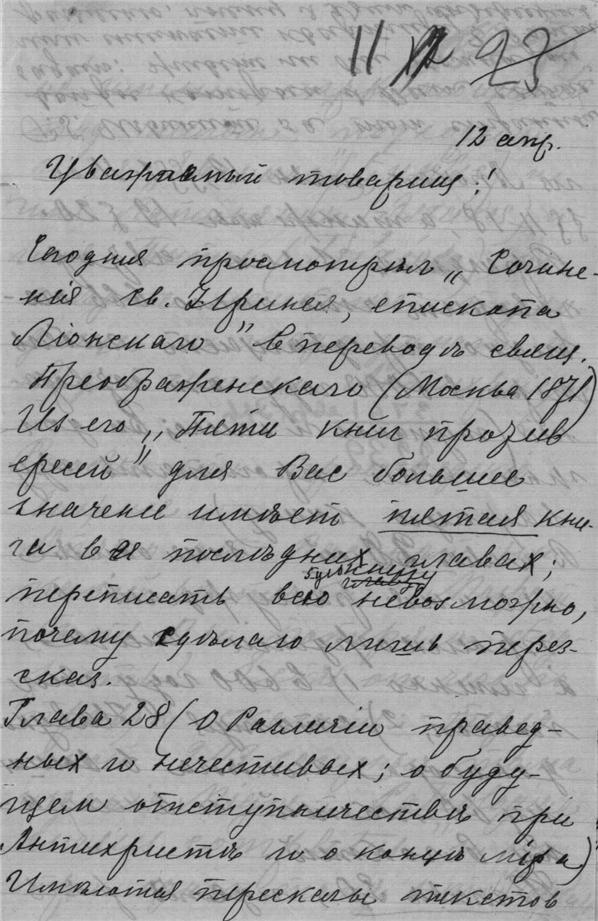 11 23
12 апр.
Уважаемый товарищ!
Сегодня просмотрѣлъ „Сочине-
нія св. Иринея, епископа
Ліонскаго" въ переводѣ свящ.
Преображенскаго (Москва 1871)
Из его „Пяти книг против
ересей" для Вас большее
значение имѣет пятая кни-
га в ея последних главах;
книгу
переписать всю невозможно,
почему сдѣлаю лишь перес-
сказ.
Глава 28 (О различіи правед-
ных и нечестивых; о буду-
щем отступничествѣ при
Антихристѣ и о концѣ міра)
Имѣются пересказы текстов